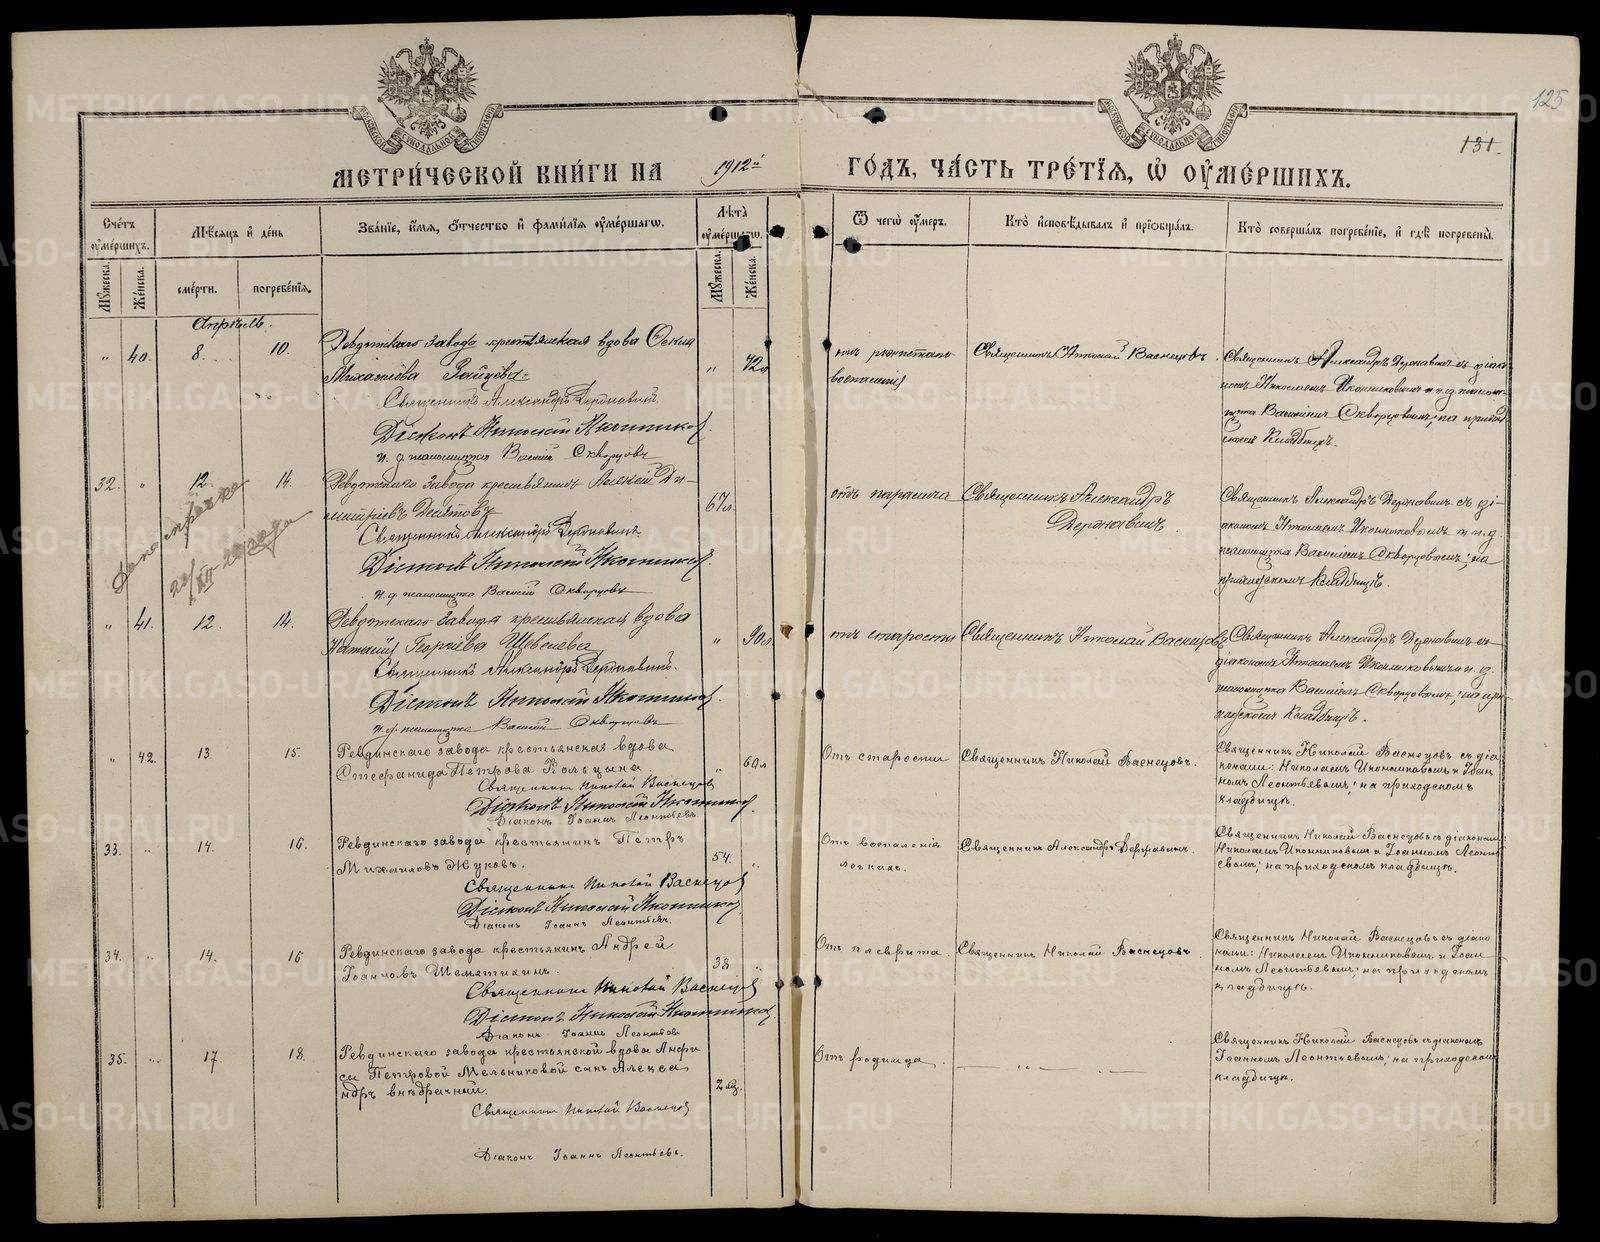 125
131.
МЕТРИ́ЧЕСКОЙ КНИ́ГИ НА 1912й ГО́ДЪ, ЧА́СТЬ ТРЕ́ТІѦ, Ѡ ОУ҆МЕ́РШИХЪ.
Сче́тъ оу҆ме́ршихъ.
Мѣ́сяцъ и҆ де́нь
Зва́ніе, и҆́мя, ѻ҆́тчество и҆ фами́лія оу҆ме́ршагѡ.
Лѣ́та оу҆ме́ршагѡ.
Ѿ чегѡ̀ оу҆́меръ.
Кто̀ и҆сповѣ́дывалъ и҆ пріѡбща́лъ.
Кто̀ соверша́лъ погребе́ніе, и҆ гдѣ̀ погребены̀.
Мꙋ́жеска.
Же́нска.
сме́рти.
погребе́нія.
Мꙋ́жеска.
Же́нска.
Апрѣль.
„ 40. 8. 10.
Ревдинскаго завода крестьянская вдова
Зайцева.
Священникъ Александръ Державинъ.
Діаконъ Николай Иконниковъ
и. д. псаломщика Василій Скворцовъ
„ 72л
отъ
воспаленія
Священникъ Николай Васнецовъ.
Священникъ Александръ Державинъ съ діако-
номъ Николаемъ Иконниковымъ и и.д. псалом-
щика Василіемъ Скворцовымъ; на приход-
скомъ кладбищѣ.
32. „ 12. 14.
Ревдинскаго завода крестьянинъ Алексій Ди-
митріевъ Десятовъ
Священникъ Александръ Державинъ.
Діаконъ Николай Иконниковъ.
и. д. псаломщика Василій Скворцовъ
67л.
отъ паралича
Священникъ Александръ
Державинъ.
Священникъ Александръ Державинъ съ ді-
акономъ Николаемъ Иконниковымъ и и.д.
псаломщика Василіемъ Скворцовымъ; на
приходскомъ кладбищѣ.
20/XII
„ 41. 12. 14.
Ревдинскаго завода крестьянская вдова
Наталія Георгіева Щевелева
Священникъ Александръ Державинъ.
Діаконъ Николай Иконниковъ.
и. д. псаломщика Василій Скворцовъ
„ 90л.
отъ старости
Священникъ Николай Васнецовъ
Священникъ Александръ Державинъ съ
діакономъ Николаемъ Иконниковымъ и и.д.
псаломщика Василіемъ Скворцовымъ; на при-
ходскомъ кладбищѣ.
„ 42. 13. 15.
Ревдинскаго завода крестьянская вдова
Стефанида Петрова Кольцына.
Священникъ Николай Васнецовъ
Діаконъ Николай Иконниковъ.
Діаконъ Іоаннъ Леонтьевъ.
„ 60л
Отъ старости
Священникъ Николай Васнецовъ.
Священникъ Николай Васнецовъ съ діа-
конами: Николаемъ Иконниковымъ и Іоан-
номъ Леонтьевымъ; на приходскомъ
кладбищѣ.
33. „ 14. 16.
Ревдинскаго завода крестьянинъ Петръ
Михаиловъ Жуковъ.
Священникъ Николай Васнецовъ
Діаконъ Николай Иконниковъ.
Діаконъ Іоаннъ Леонтьевъ.
54. „
Отъ воспаленія
легкихъ.
Священникъ Александръ Державинъ.
Священникъ Николай Васнецовъ съ діаконами:
Николаемъ Иконниковымъ и Іоанномъ Леонть-
евымъ; на приходскомъ кладбищѣ.
34. „ 14. 16
Ревдинскаго завода крестьянинъ Андрей
Іоанновъ Шемятихинъ.
Священникъ Николай Васнецовъ
Діаконъ Николай Иконниковъ.
Діаконъ Іоаннъ Леонтьевъ
38. „
Отъ плеврита.
Священникъ Николай Васнецовъ.
Священникъ Николай Васнецовъ съ діако-
нами: Николаемъ Иконниковымъ и Іоан-
номъ Леонтьевымъ; на приходскомъ
кладбищѣ.
35. „ 17. 18.
Ревдинскаго завода крестьянской вдовы Анфи-
сы Петровой Мельниковой сынъ Алекса-
ндръ внѣбрачный.
Священникъ Николай Васнецовъ
Діаконъ Іоаннъ Леонтьевъ.
2 мѣс.
Отъ родимца.
— „ —
Священникъ Николай Васнецовъ съ діакономъ
Іоанномъ Леонтьевымъ; на приходскомъ
кладбищѣ.
METRIKI.GASO-URAL.RU